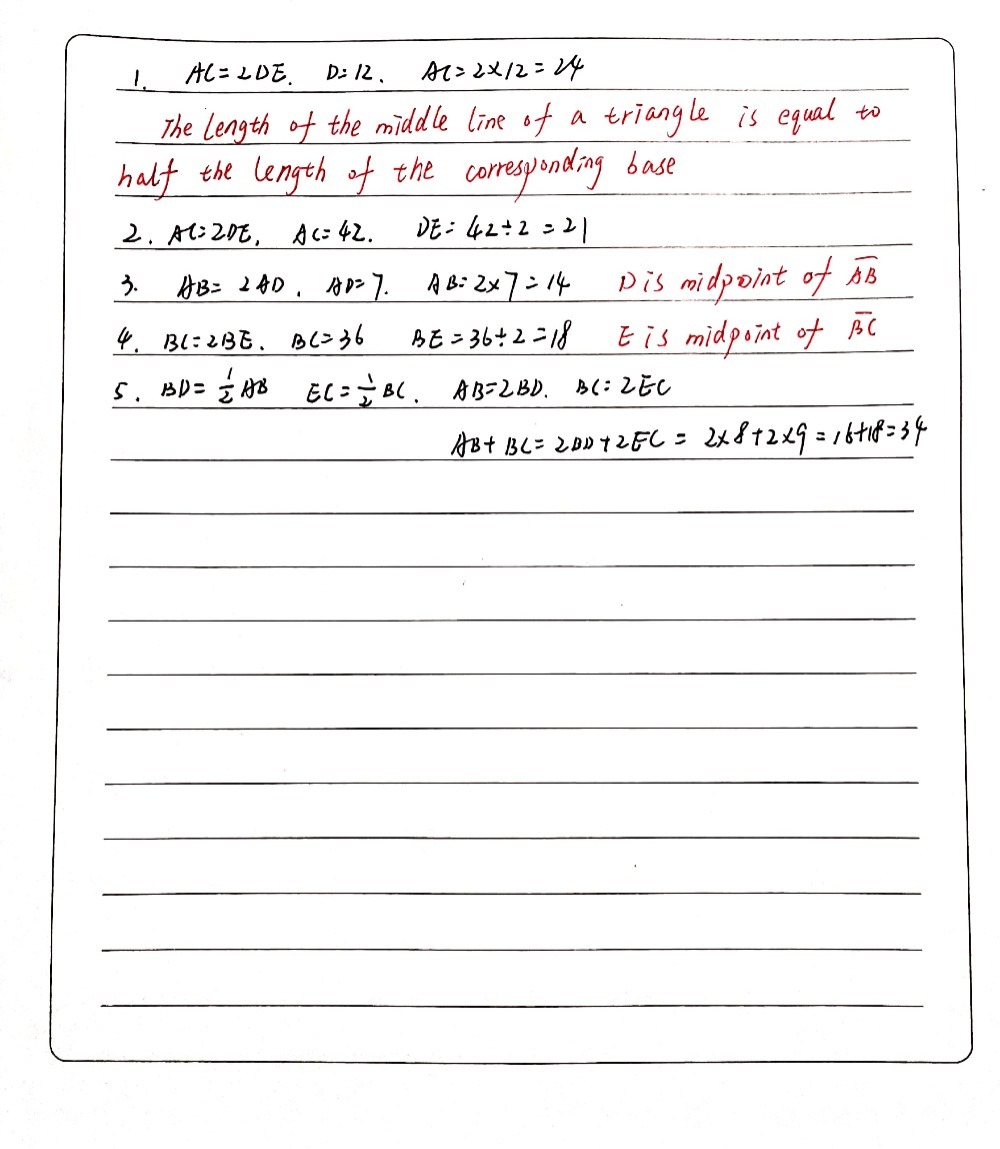 1. AC=2DE. D=12. AC=2×12=24
The length of the middle line of a triangle is equal to
half the length of the corresponding base
2. AC=2DE. AC=42. DE=42÷2=21
3. AB=2AD. AD=7. AB=2×7=14 D is midpoint of \overline{AB}
4. BC=2BE. BC=36 BE=36÷2=18 E is midpoint of \overline{BC}
5. BD=\frac{1}{2}AB EC=\frac{1}{2}BC. AB=2BD. BC=2EC
AB+BC=2BD+2EC=2×8+2×9=16+18=34